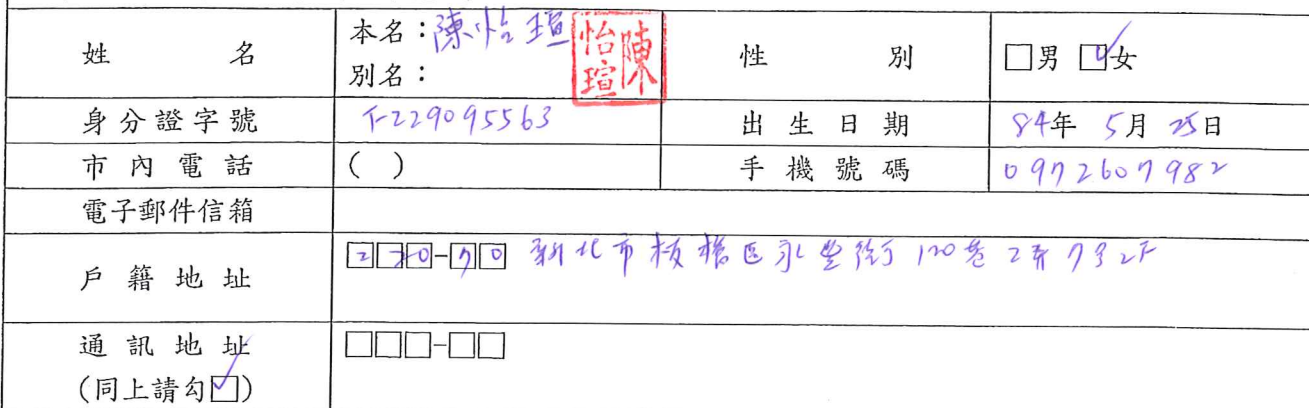 姓名 本名：陳怡瑄 陳怡瑄 性別 □男 ☑女
別名：
身分證字號 F229095563 出生日期 84年 5月 25日
市內電話 ( ) 手機號碼 0972607982
電子郵件信箱
戶籍地址 220-70 新北市板橋區永豐街120巷2弄7號2F
通訊地址 □□□-□□
(同上請勾☑)